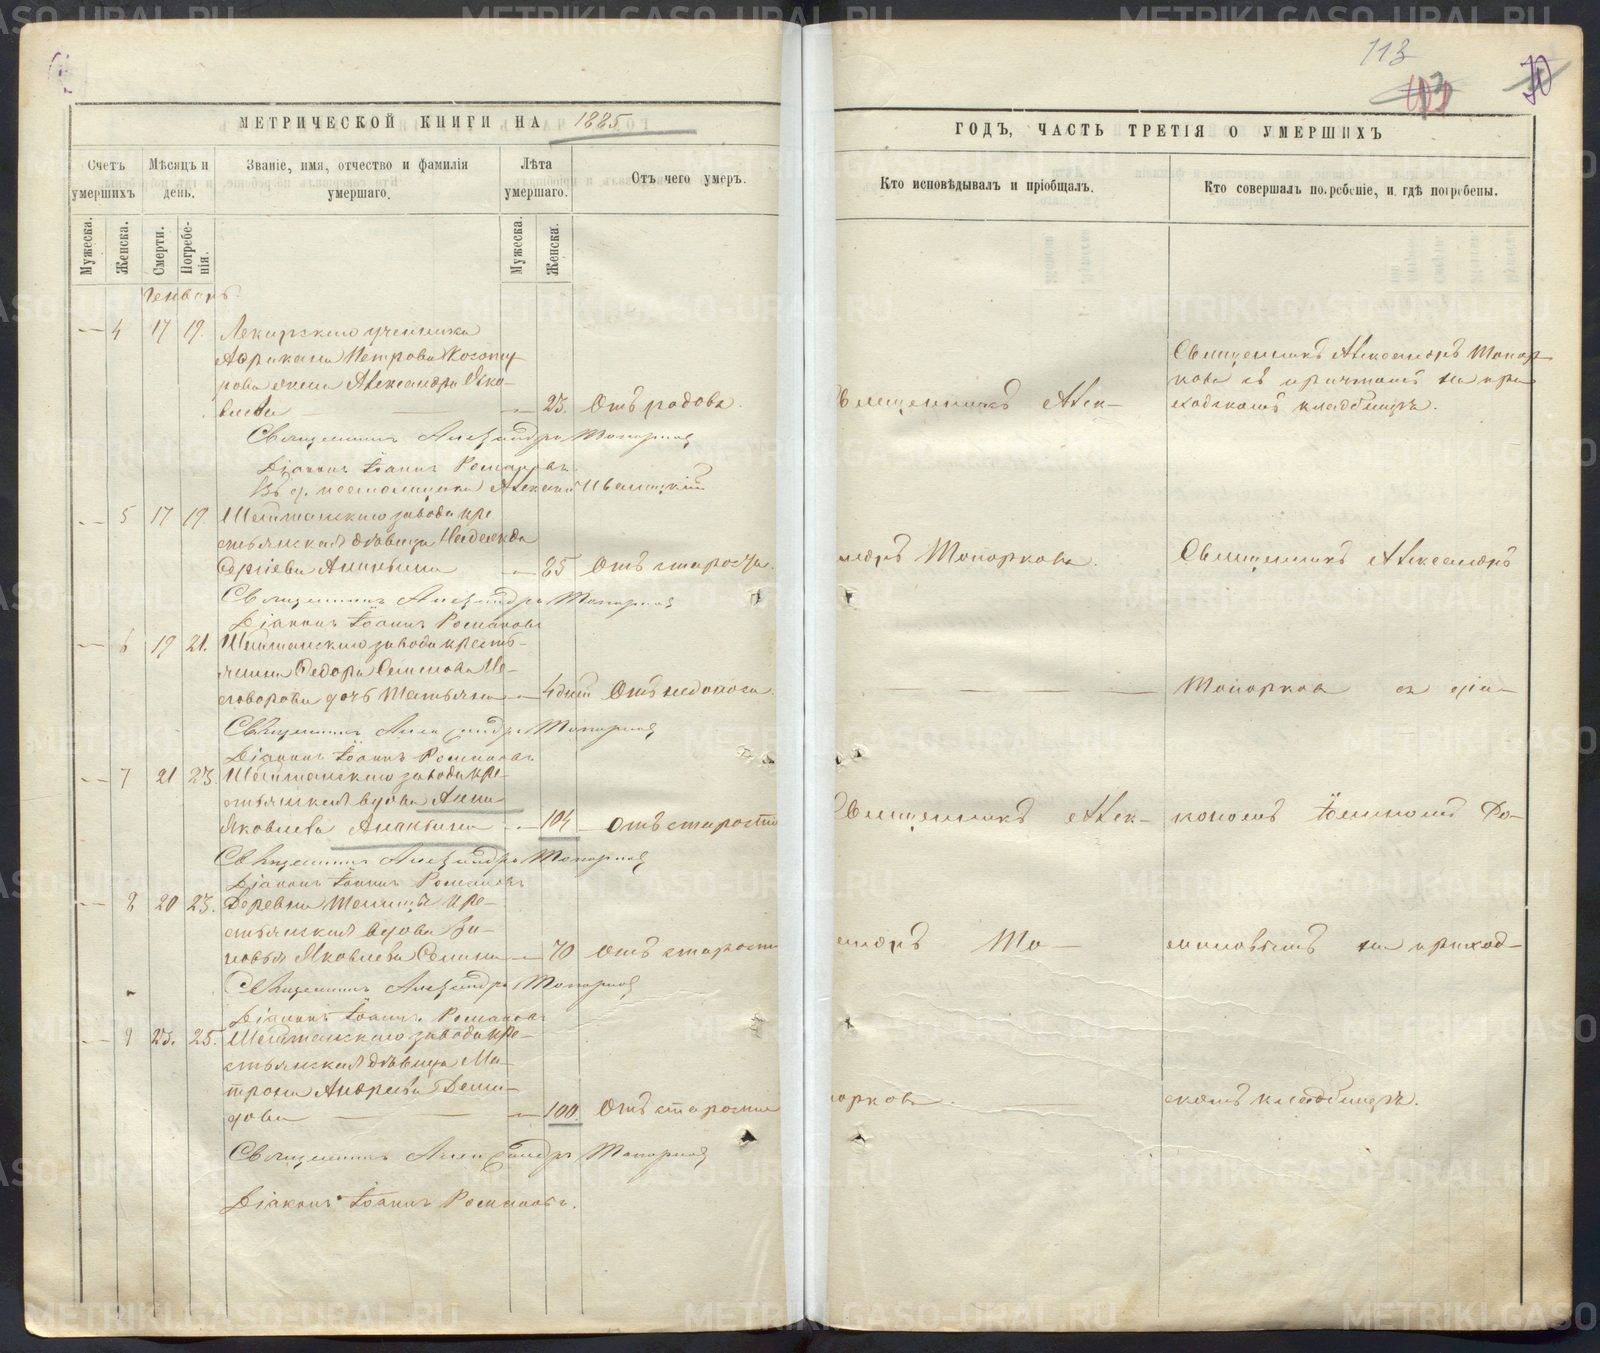 113
МЕТРИЧЕСКОЙ КНИГИ НА 1885
ГОДЪ, ЧАСТЬ ТРЕТІЯ О УМЕРШИХЪ
Счетъ умершихъ
Мѣсяцъ и день.
Званіе, имя, отчество и фамилія умершаго.
Лѣта умершаго.
Отъ чего умеръ.
Кто исповѣдывалъ и пріобщалъ.
Кто совершалъ погребеніе, и гдѣ погребены.
Мужеска.
Женска.
Смерти.
Погребенія.
Мужеска.
Женска.
Генварь.
4 17 19. Лекарскаго ученика
Африкана Петрова
жена Александра Яко-
влева 23. Отъ родовъ.
Священникъ Александръ Топорковъ
Діаконъ Іоаннъ Романовъ
5 17 19. Шайтанскаго завода кре
стьянская дѣвица Надежда
Ананьина 85 Отъ старости.
Священникъ Александръ Топорковъ
Діаконъ Іоаннъ Романовъ
6 19 21. Шайтанскаго завода кресть-
янина Федора Семенова Не-
говорова дочь Татьяна 4 дней Отъ недоноса.
Священникъ Александръ Топорковъ
Діаконъ Іоаннъ Романовъ
7 21 23. Шайтанскаго завода кре-
стьянская вдова Анна
Яковлева Ананьина 104 Отъ старости
Священникъ Александръ Топорковъ
Діаконъ Іоаннъ Романовъ
8 20 23. Деревни Талицы кре-
стьянская вдова Зи-
новья Яковлева 70 Отъ старости
Священникъ Александръ Топорковъ
Діаконъ Іоаннъ Романовъ
9 23. 25. Шайтанскаго завода кре-
стьянская дѣвица Ма-
трона Андреева Деми-
дова 100 Отъ старости
Священникъ Александръ Топорковъ
Діаконъ Іоаннъ Романовъ.
Священникъ Алек-
сандръ Топорковъ.
Священникъ Алек-
сандръ То-
порковъ.
Священникъ Александръ Топор-
ковъ съ причтомъ на при
ходскомъ кладбищѣ.
Священникъ Александръ
Топорковъ съ діа-
кономъ Іоанномъ Ро-
мановымъ на приход-
скомъ кладбищѣ.
METRIKI.GASO-URAL.RU